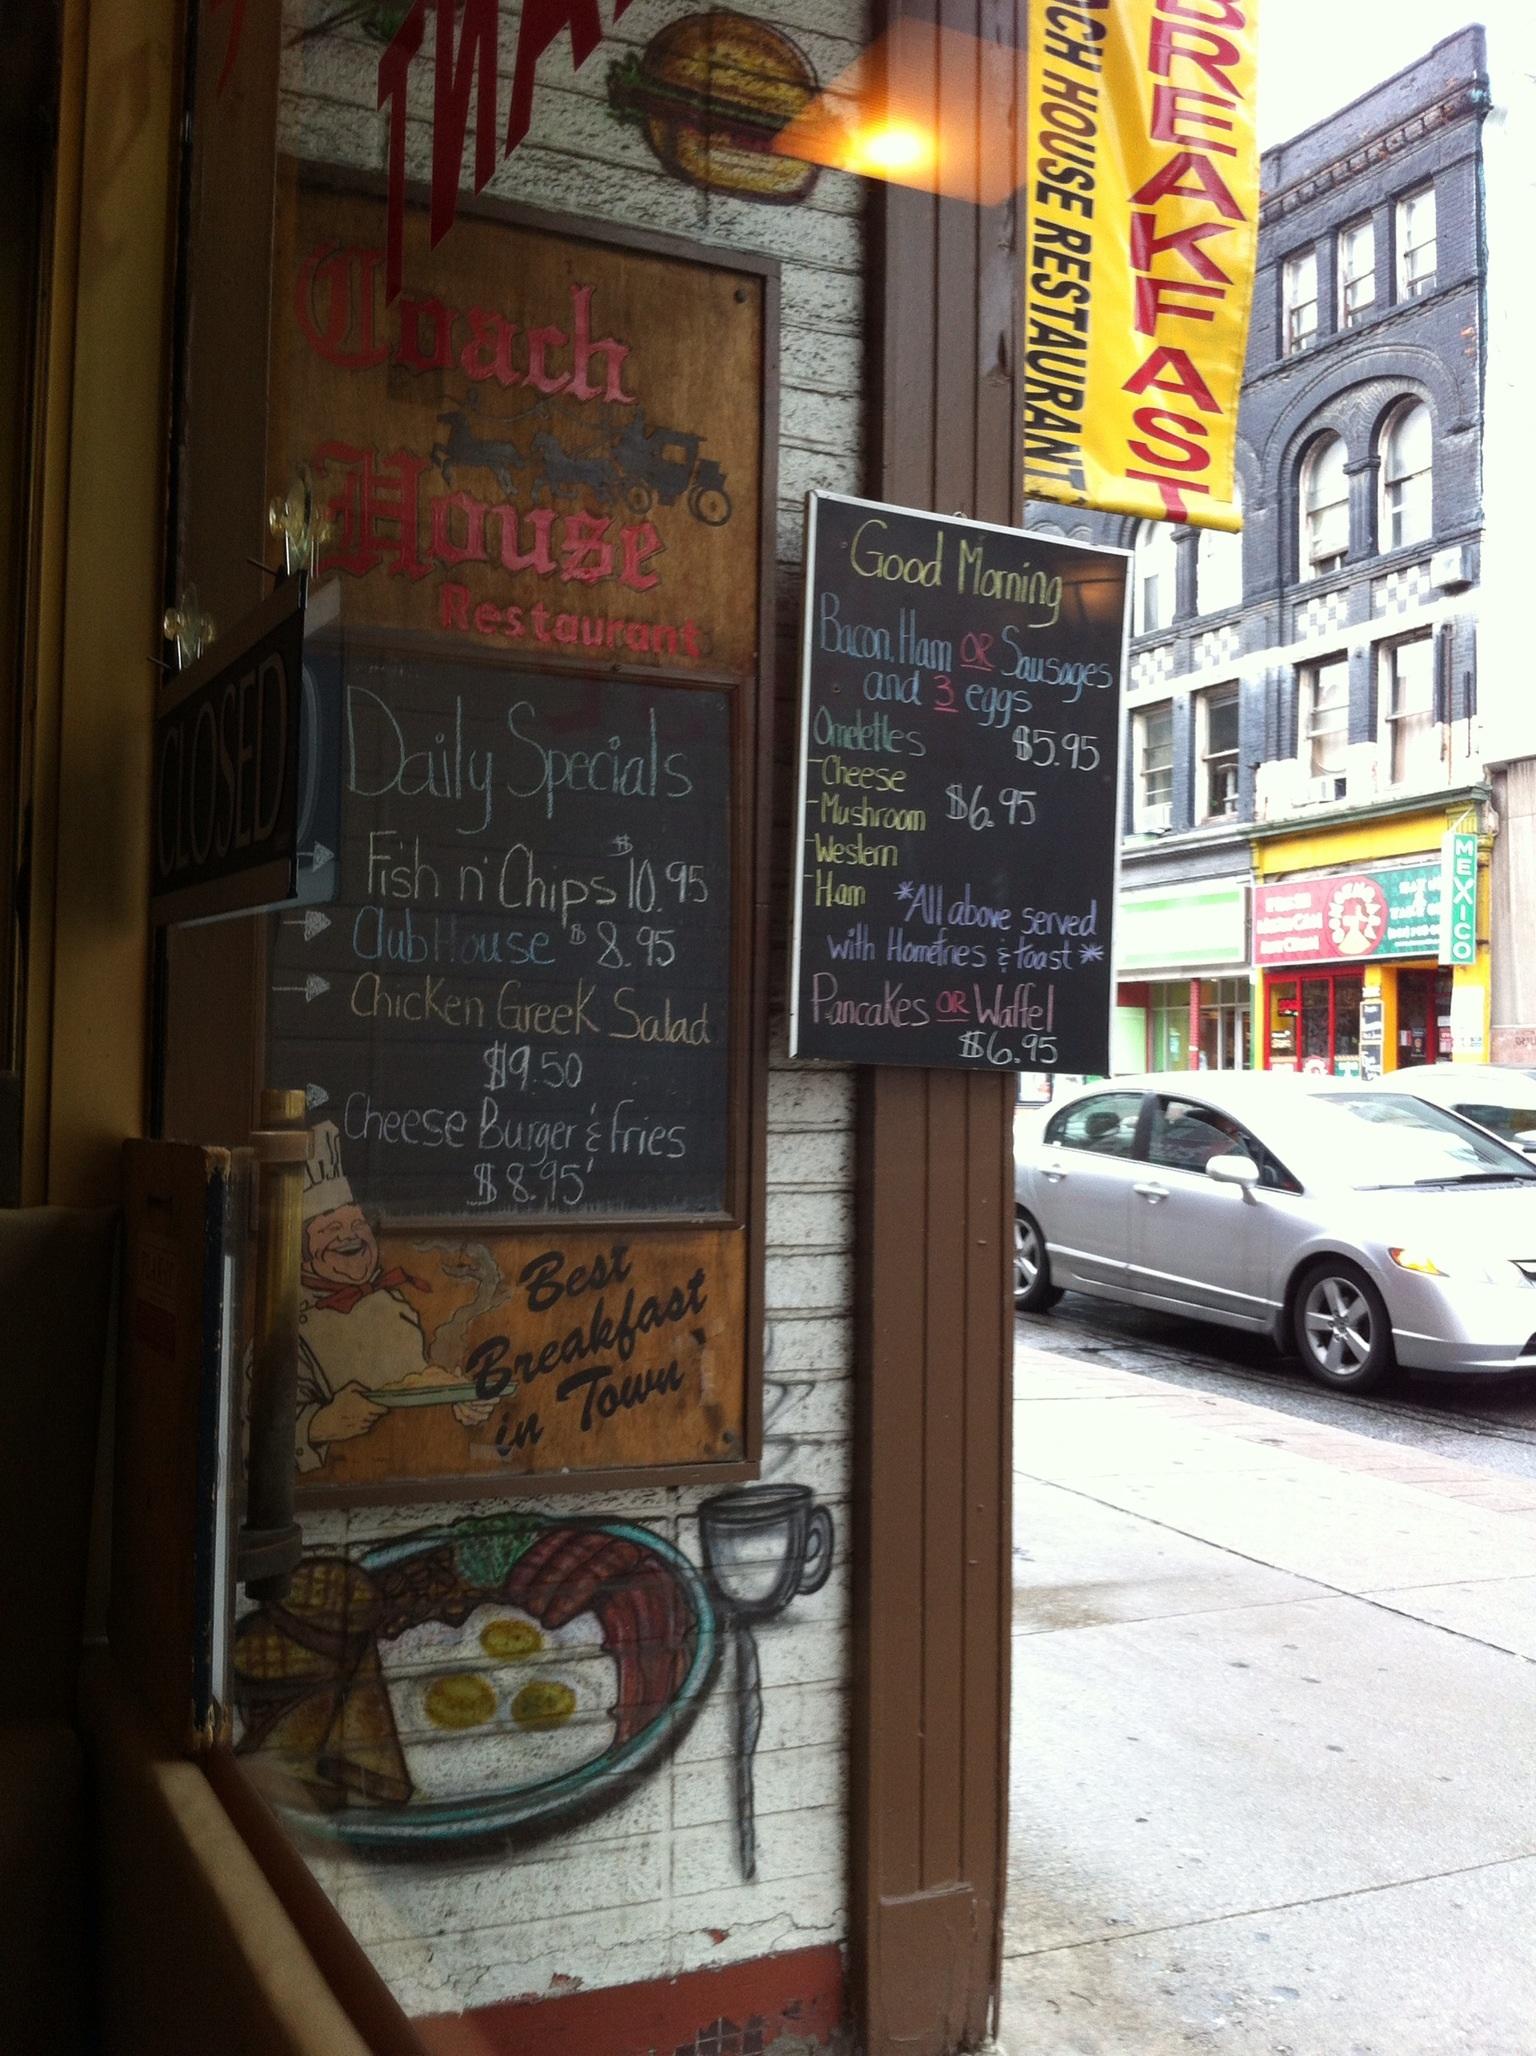 Coach
House
Restaurant
Daily Specials
Fish n' Chips $10.95
ClubHouse $8.95
Chicken Greek Salad
$9.50
Cheese Burger & Fries
$8.95
Best
Breakfast
in Town
CLOSED
Good Morning
Bacon, Ham OR Sausages
and 3 eggs
$5.95
Omelettes
-Cheese
-Mushroom $6.95
-Western
-Ham
*All above served
with Homefries & toast*
Pancakes OR Waffel
$6.95
BREAKFAST
ACH HOUSE RESTAURANT
MEXICO